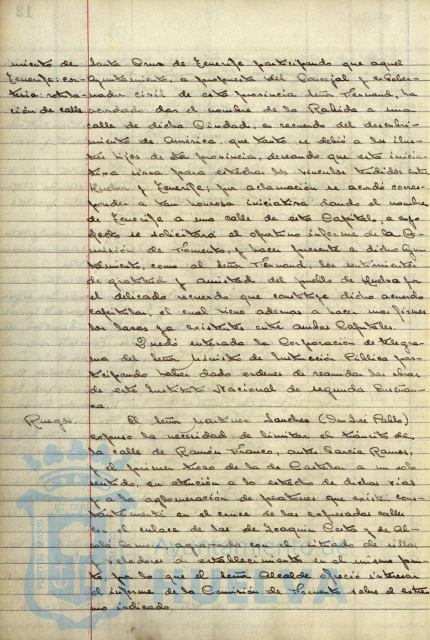 miento de
Tenerife: cor-
tesia: rotula-
ción de calle
Santa Cruz de Tenerife participando que aquel
Ayuntamiento, a propuesta del Concejal y exGober-
nador civil de esta provincia señor Fernand, ha
acordado dar el nombre de la Rabida a una
calle de dicha Ciudad, en recuerdo del descubri-
miento de América, que tanto se debió a los ilus-
tres hijos de esta provincia, deseando que esta inicia-
tiva sirva para estrechar los vinculos tendidos entre
Huelva y Tenerife; por aclamación se acordó corres-
ponder a tan honrosa iniciativa dando el nombre
de Tenerife a una calle de esta Capital, a cuyo
efecto se solicitará el oportuno informe de la Co-
misión de Fomento, y hacer presente a dicho Ayun-
tamiento, como al señor Fernand, los sentimientos
de gratitud y amistad del pueblo de Huelva por
el delicado recuerdo que constituye dicho acuerdo
capitular, el cual viene ademas a hacer mas firmes
los lazos ya existentes entre ambas Capitales.
Quedó enterada la Corporación de telegra-
ma del señor Ministro de Instrucción Pública par-
ticipando haber dado ordenes de reanudar las obras
de este Instituto Nacional de segunda Enseñan-
za.
Ruegos.
El señor Martinez Sanchez (Don José Pablo)
expuso la necesidad de limitar el tránsito de
la calle de Ramón Franco, antes Garcia Ramos,
y el primer trozo de la de Castelar a un solo
sentido, en atención a lo estrecho de dichas vias
y a la aglomeración de peatones que existe cons-
tantemente en el cruce de las expresadas calles
en el enlace de las de Joaquin Costa y de Al-
calá Zamora, agravado con el situado de sillas
y veladores de establecimientos en el mismo pun-
to, por lo que el señor Alcalde ofreció interesar
el informe de la Comisión de Fomento sobre el extre-
mo indicado.
HUELVA